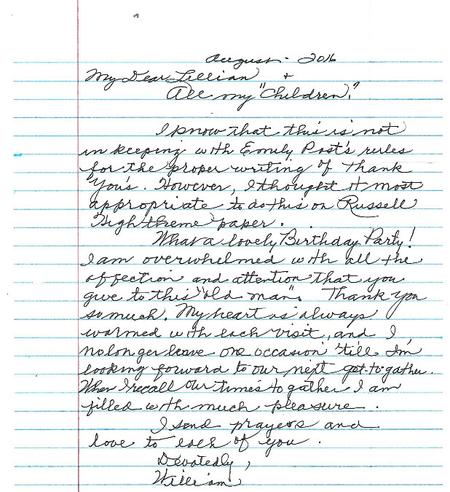 August - 2016
My Dear Lillian &
All my "Children."
I know that this is not
in keeping with Emily Post's rules
for the proper writing of Thank
You's. However, I thought it most
appropriate to do this on Russell
High theme paper.
What a lovely Birthday Party!
I am overwhelmed with all the
affection and attention that you
give to this "old man". Thank you
so much. My heart is always
warmed with each visit, and I
no longer leave one occasion 'till I'm
looking forward to our next get-to-gather.
When I recall our times to gather I am
filled with much pleasure.
I send prayers and
love to each of you.
Devotedly,
William